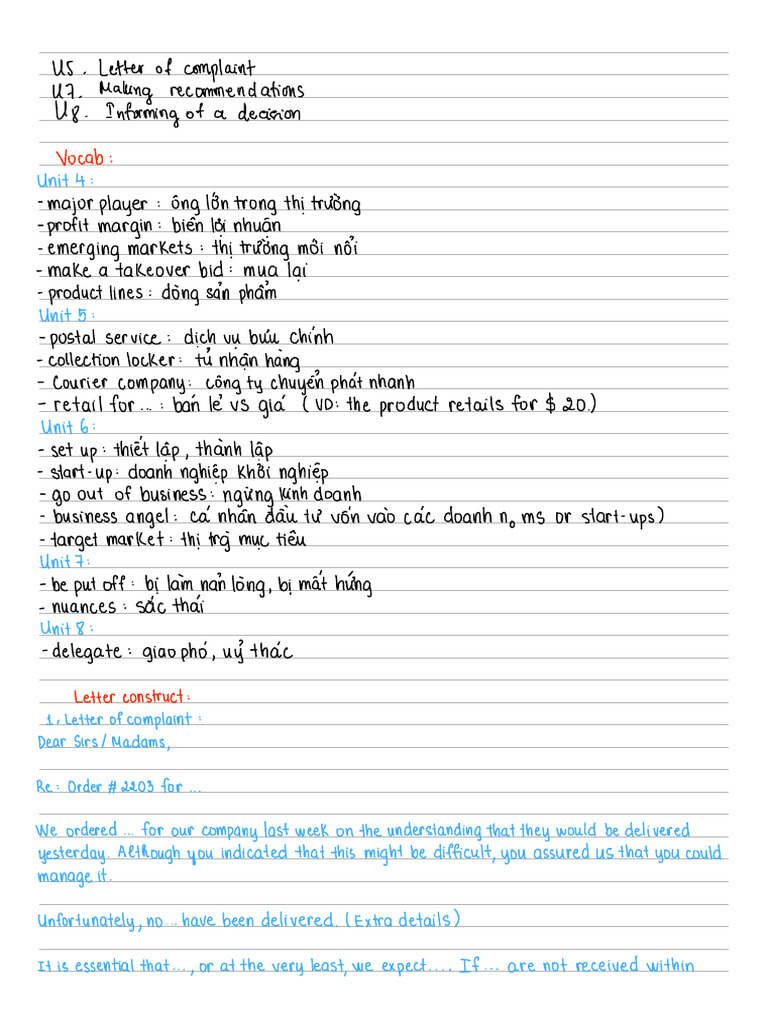 U5. Letter of complaint
U7. Making recommendations
U8. Informing of a decision
Vocab:
Unit 4:
- major player : ông lớn trong thị trường
- profit margin : biên lợi nhuận
- emerging markets : thị trường mới nổi
- make a takeover bid : mua lại
- product lines : dòng sản phẩm
Unit 5:
- postal service : dịch vụ bưu chính
- collection locker : tủ nhận hàng
- Courier company : công ty chuyển phát nhanh
- retail for ... : bán lẻ vs giá ( VD: the product retails for $ 20.)
Unit 6:
- set up : thiết lập , thành lập
- start-up : doanh nghiệp khởi nghiệp
- go out of business : ngừng kinh doanh
- business angel : cá nhân đầu tư vốn vào các doanh n₀ ms or start-ups)
- target market : thị trg mục tiêu
Unit 7:
- be put off : bị làm nản lòng, bị mất hứng
- nuances : sắc thái
Unit 8 :
- delegate : giao phó, uỷ thác
Letter construct :
1, Letter of complaint :
Dear Sirs / Madams,
Re : Order # 2203 for ...
We ordered ... for our company last week on the understanding that they would be delivered
yesterday. Although you indicated that this might be difficult, you assured us that you could
manage it.
Unfortunately, no ... have been delivered. ( Extra details )
It is essential that ... , or at the very least, we expect .... If ... are not received within